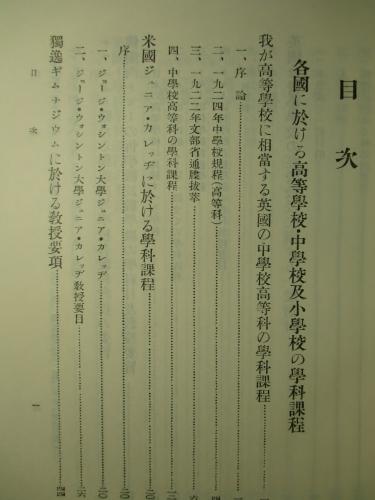 目次
各國に於ける高等學校・中學校及小學校の學科課程
我が高等學校に相當する英國の中學校高等科の學科課程
一、序論
二、一九二四年中學校規程(高等科)
三、一九二二年文部省通牒拔萃
四、中學校高等科の學科課程
米國ジュニア・カレッヂに於ける學科課程……二〇
序……二〇
一、ジョージ・ウォシントン大學ジュニア・カレッヂ……二〇
二、ジョージ・ウォシントン大學ジュニア・カレッヂ教授要目……二六
獨逸ギムナジウムに於ける教授要項……四四
目次 一